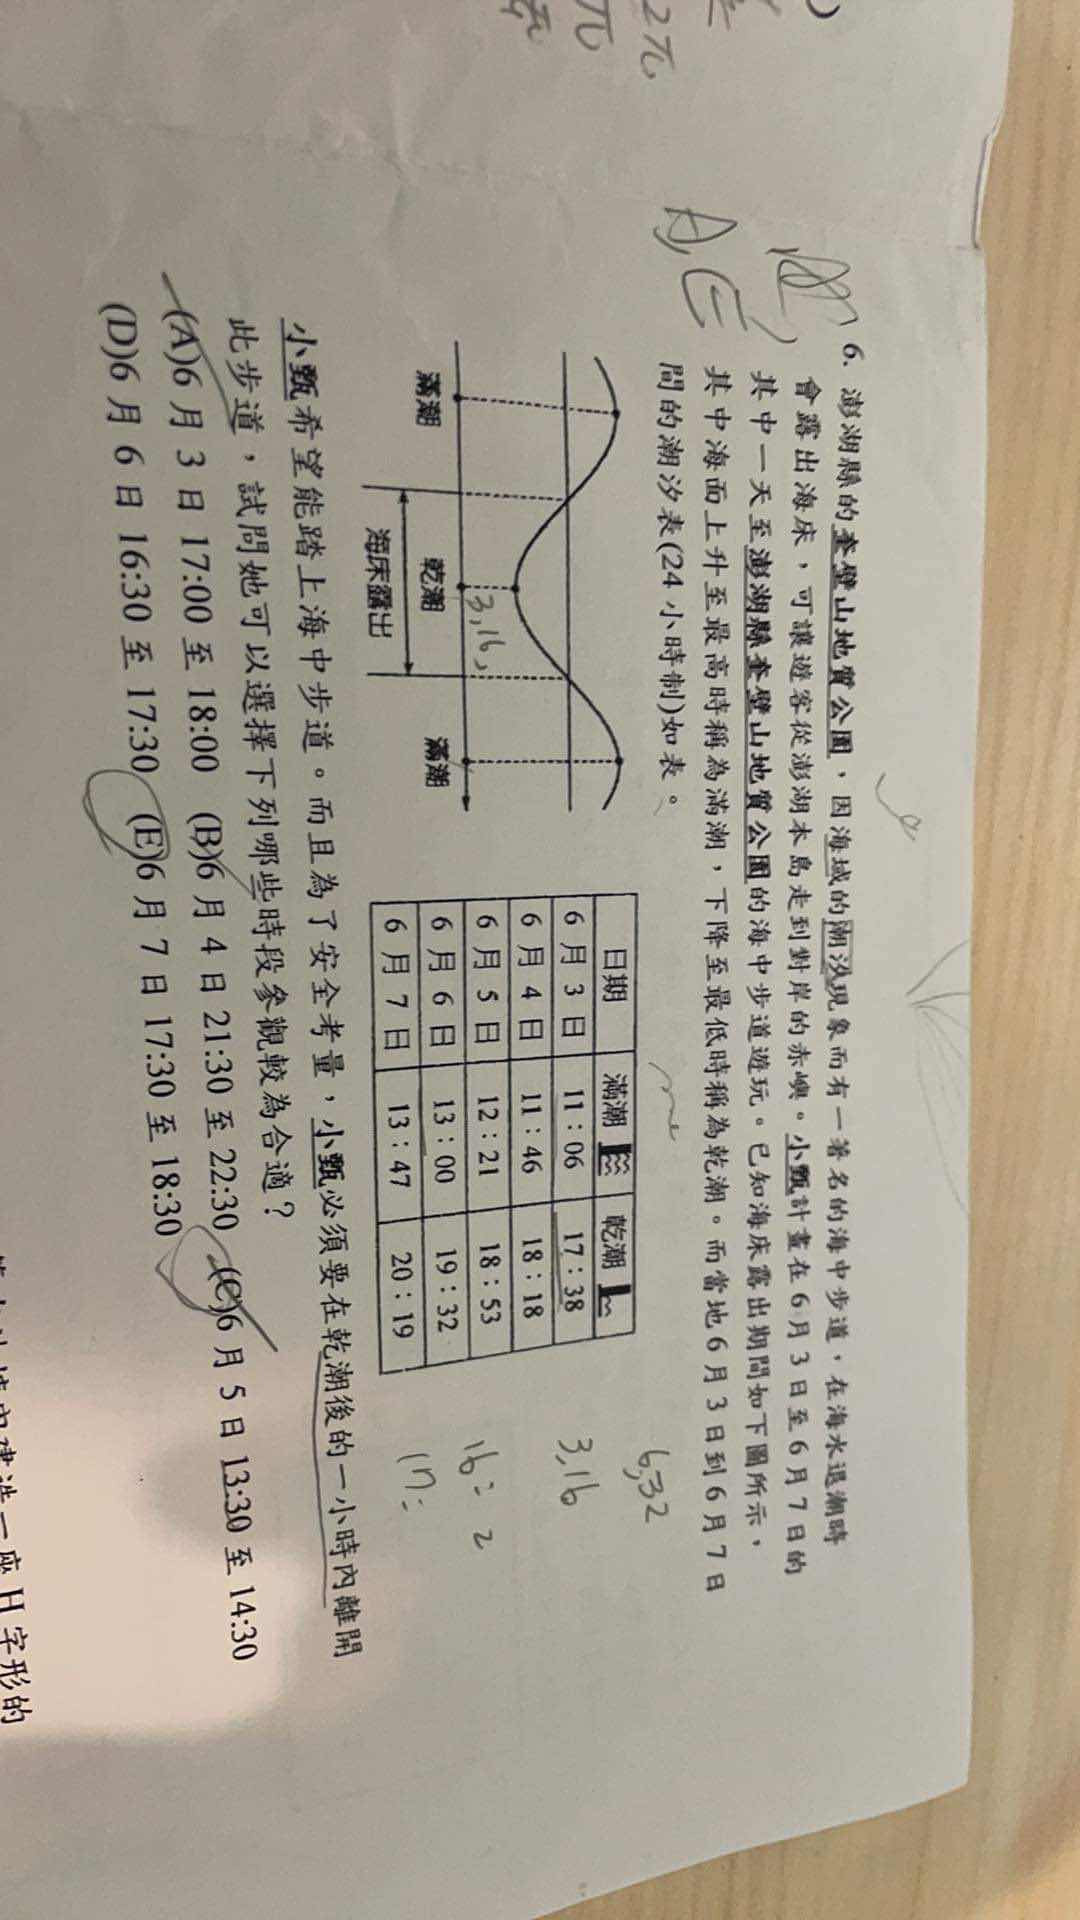 2π
π
A, E
6. 澎湖縣的奎壁山地質公園，因海域的潮汐現象而有一著名的海中步道，在海水退潮時
會露出海床，可讓遊客從澎湖本島走到對岸的赤嶼。小甄計畫在6月3日至6月7日的
其中一天至澎湖縣奎壁山地質公園的海中步道遊玩。已知海床露出期間如下圖所示，
其中海面上升至最高時稱為滿潮，下降至最低時稱為乾潮。而當地6月3日到6月7日
間的潮汐表(24小時制)如表。
滿潮 乾潮 滿潮
3,16,
海床露出
日期 滿潮 乾潮
6月3日 11：06 17：38
6月4日 11：46 18：18
6月5日 12：21 18：53
6月6日 13：00 19：32
6月7日 13：47 20：19
6,32
3,16
16: 2
17:
小甄希望能踏上海中步道。而且為了安全考量，小甄必須要在乾潮後的一小時內離開
此步道，試問她可以選擇下列哪些時段參觀較為合適？
(A)6月3日17:00至18:00 (B)6月4日21:30至22:30 (C)6月5日13:30至14:30
(D)6月6日16:30至17:30 (E)6月7日17:30至18:30
建造一座H字形的